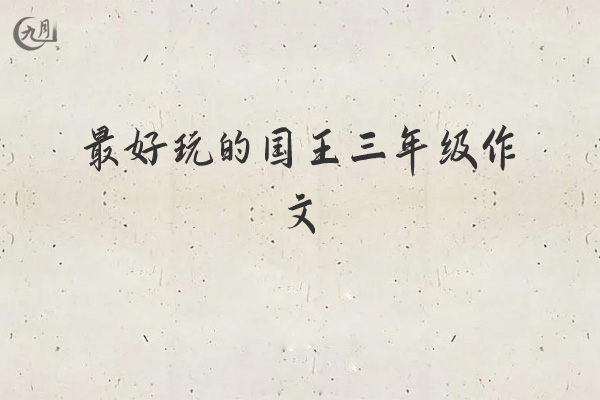 九月
最好玩的国王三年级作
文